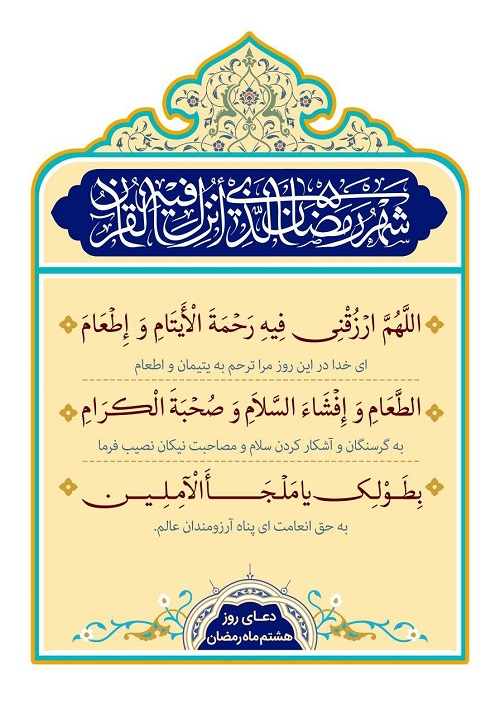 شهر رمضان الذی أنزل فیه القرآن
اللَّهُمَّ ارْزُقْنِی فِیهِ رَحْمَةَ الْأَیتَامِ وَ إِطْعَامَ
ای خدا در این روز مرا ترحم به یتیمان و اطعام
الطَّعَامِ وَ إِفْشَاءَ السَّلاَمِ وَ صُحْبَةَ الْکِرَامِ
به گرسنگان و آشکار کردن سلام و مصاحبت نیکان نصیب فرما
بِطَوْلِکَ یا مَلْجَأَ الْآمِلِینَ
به حق انعامت ای پناه آرزومندان عالم.
دعای روز
هشتم ماه رمضان